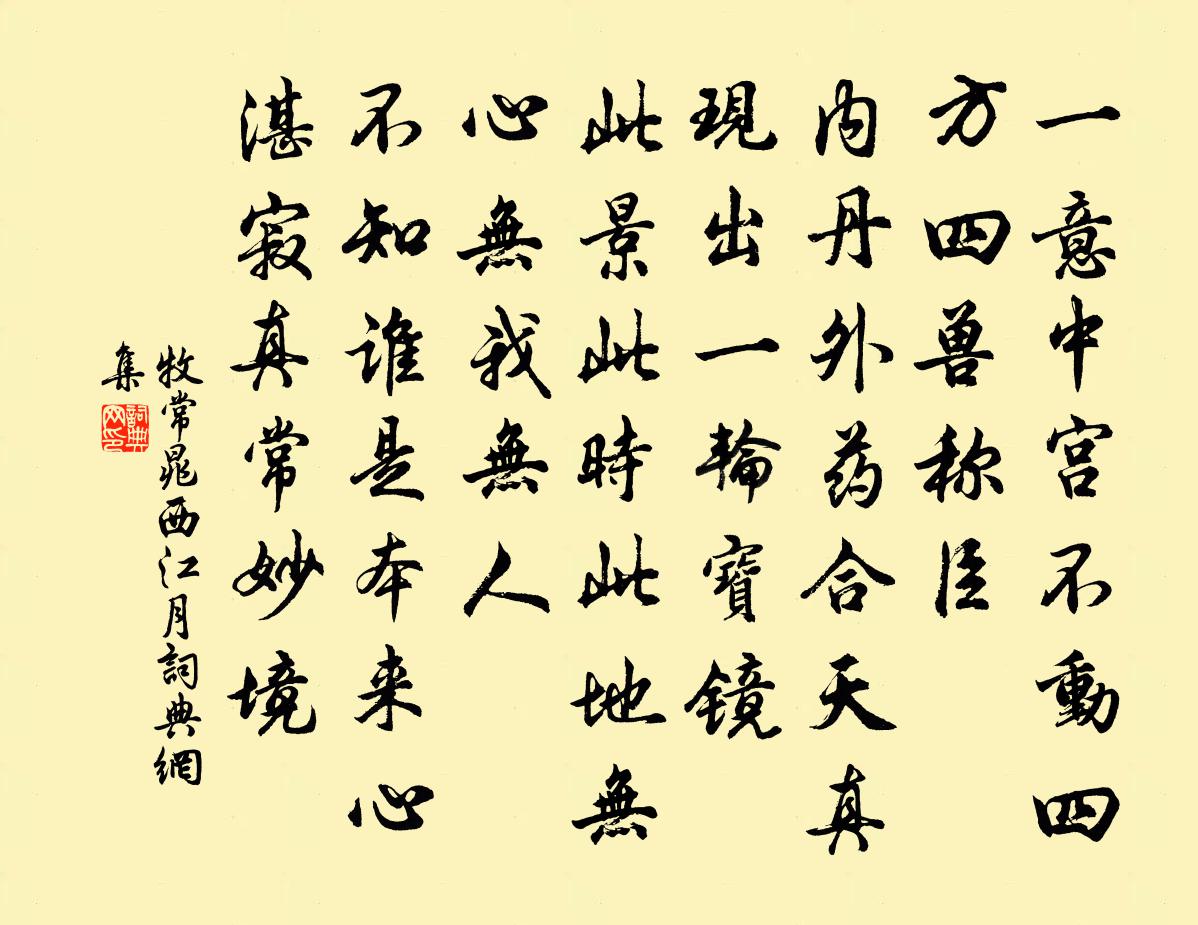 一意中宫不動四
方四兽称臣
内丹外药合天真
現出一輪寶镜
此景此時此地無
心無我無人
不知谁是本来心
湛寂真常妙境
牧常晁西江月詞典網
集
詞典
网印